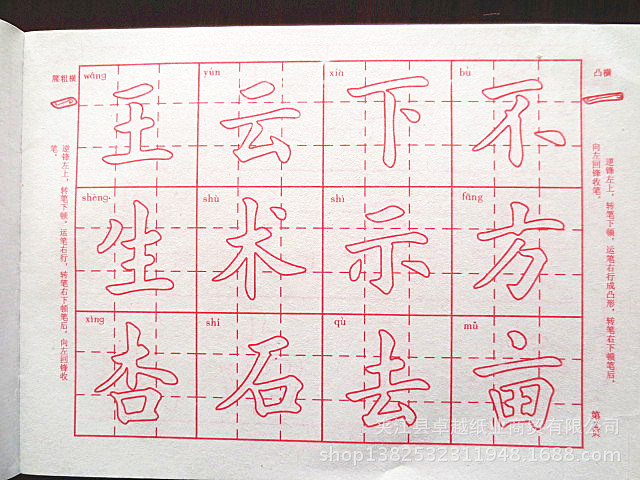 凸横
逆锋左上，转笔下顿，运笔右行成凸形，转笔右下顿笔后，
向左回锋收笔。
wáng yún xià bù
王 云 下 不
shēng shù shì fāng
生 术 示 方
xìng shí qù mǔ
杏 石 去 亩
粗横
逆锋左上，转笔下顿，运笔右行，转笔右下顿笔后，向左回锋收
笔。
夹江县卓越纸业商贸有限公司
shop1382532311948.1688.com